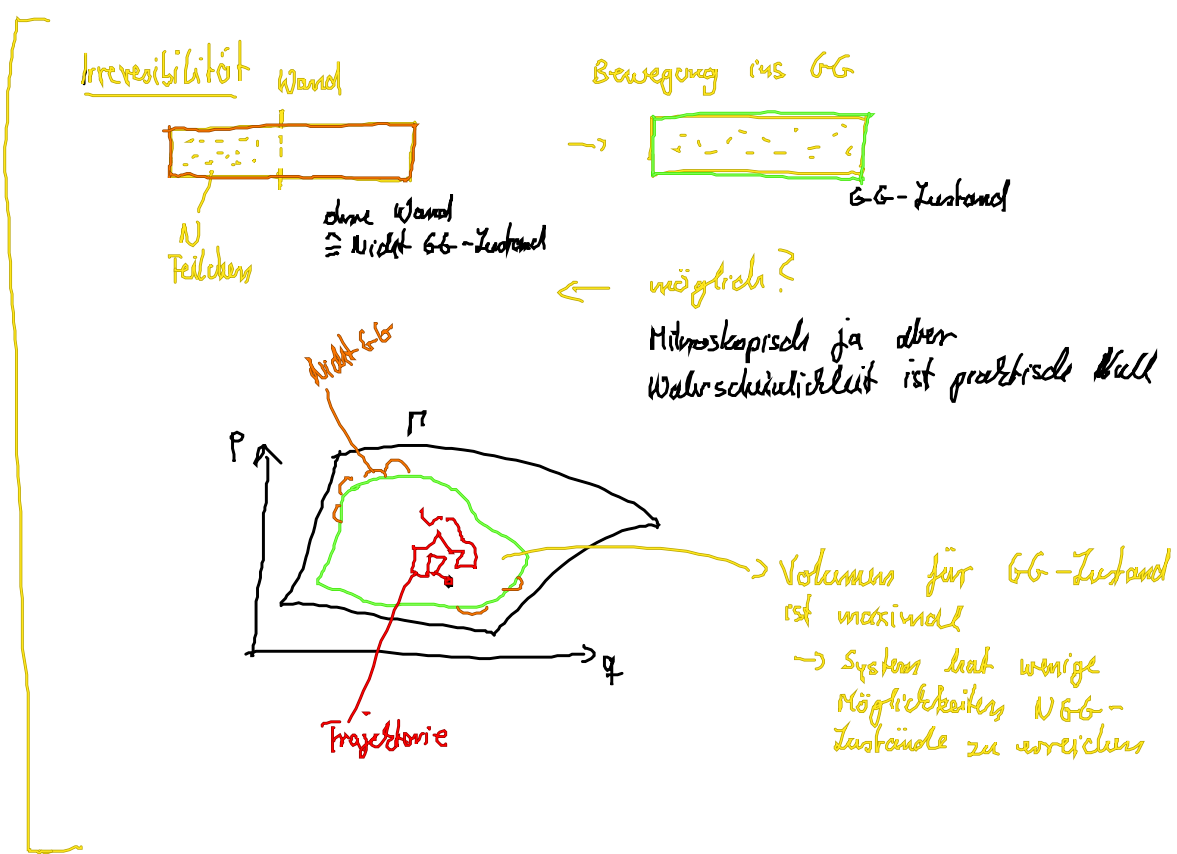 Irreversibilität
Wand
Bewegung ins GG
N
Teilchen
ohne Wand
≙ Nicht GG-Zustand
GG-Zustand
möglich?
Mikroskopisch ja aber
Wahrscheinlichkeit ist praktisch Null
Nicht GG
Γ
P
q
Trajektorie
Volumen für GG-Zustand
ist maximal
→ System hat wenige
Möglichkeiten NGG-
Zustände zu erreichen